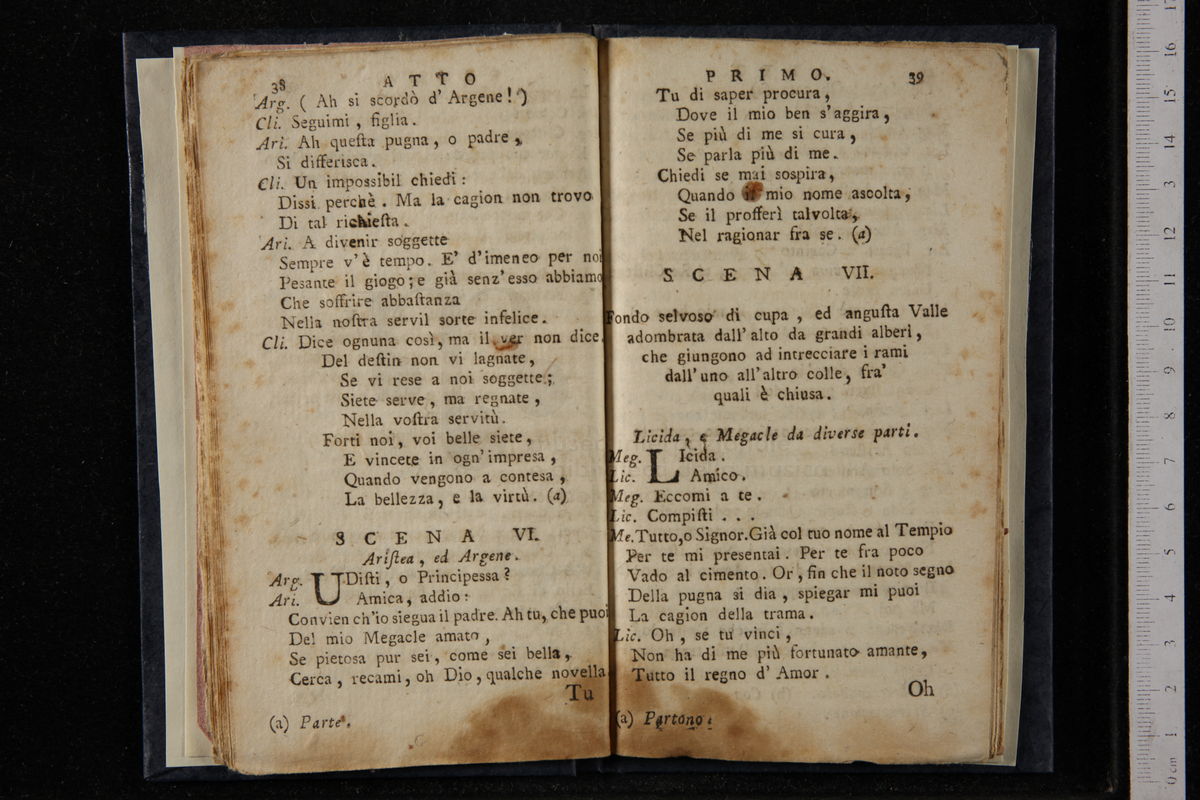 38 ATTO
Arg. ( Ah si scordò d' Argene! )
Cli. Seguimi, figlia.
Ari. Ah queſta pugna, o padre,
Si differisca.
Cli. Un impossibil chiedi:
Dissi perchè. Ma la cagion non trovo
Di tal richieſta.
Ari. A divenir soggette
Sempre v'è tempo. E' d'imeneo per noi
Pesante il giogo; e già senz'esso abbiamo
Che soffrire abbaſtanza
Nella noſtra servil sorte infelice.
Cli. Dice ognuna così, ma il ver non dice.
Del deſtin non vi lagnate,
Se vi rese a noi soggette;
Siete serve, ma regnate,
Nella voſtra servitù.
Forti noi, voi belle siete,
E vincete in ogn'impresa,
Quando vengono a contesa,
La bellezza, e la virtù. (a)
SCENA VI.
Ariſtea, ed Argene.
Arg. UDiſti, o Principessa?
Ari. Amica, addio:
Convien ch'io siegua il padre. Ah tu, che puoi
Del mio Megacle amato,
Se pietosa pur sei, come sei bella,
Cerca, recami, oh Dio, qualche novella
Tu
(a) Parte.
PRIMO. 39
Tu di saper procura,
Dove il mio ben s'aggira,
Se più di me si cura,
Se parla più di me.
Chiedi se mai sospira,
Quando il mio nome ascolta,
Se il profferì talvolta,
Nel ragionar fra se. (a)
SCENA VII.
Fondo selvoso di cupa, ed anguſta Valle
adombrata dall'alto da grandi alberi,
che giungono ad intrecciare i rami
dall'uno all'altro colle, fra'
quali è chiusa.
Licida, e Megacle da diverse parti.
Meg. LIcida.
Lic. Amico.
Meg. Eccomi a te.
Lic. Compiſti . . .
Me. Tutto, o Signor. Già col tuo nome al Tempio
Per te mi presentai. Per te fra poco
Vado al cimento. Or, fin che il noto segno
Della pugna si dia, spiegar mi puoi
La cagion della trama.
Lic. Oh, se tu vinci,
Non ha di me più fortunato amante,
Tutto il regno d' Amor.
Oh
(a) Partono.
0 cm 1 2 3 4 5 6 7 8 9 10 11 12 13 14 15 16 17